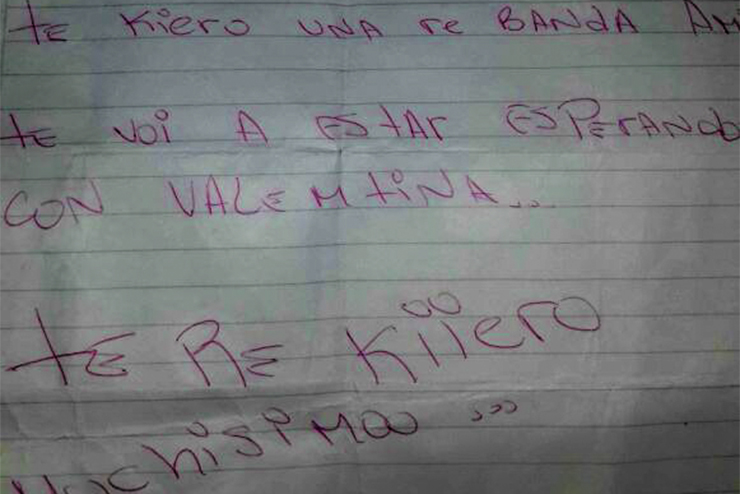 te Kiero UNA re BANdA AMi
te voi A EStAr ESPErANdo
CON VALEMtiNA...
tE RE Kiiero
MuchisiMoo ...